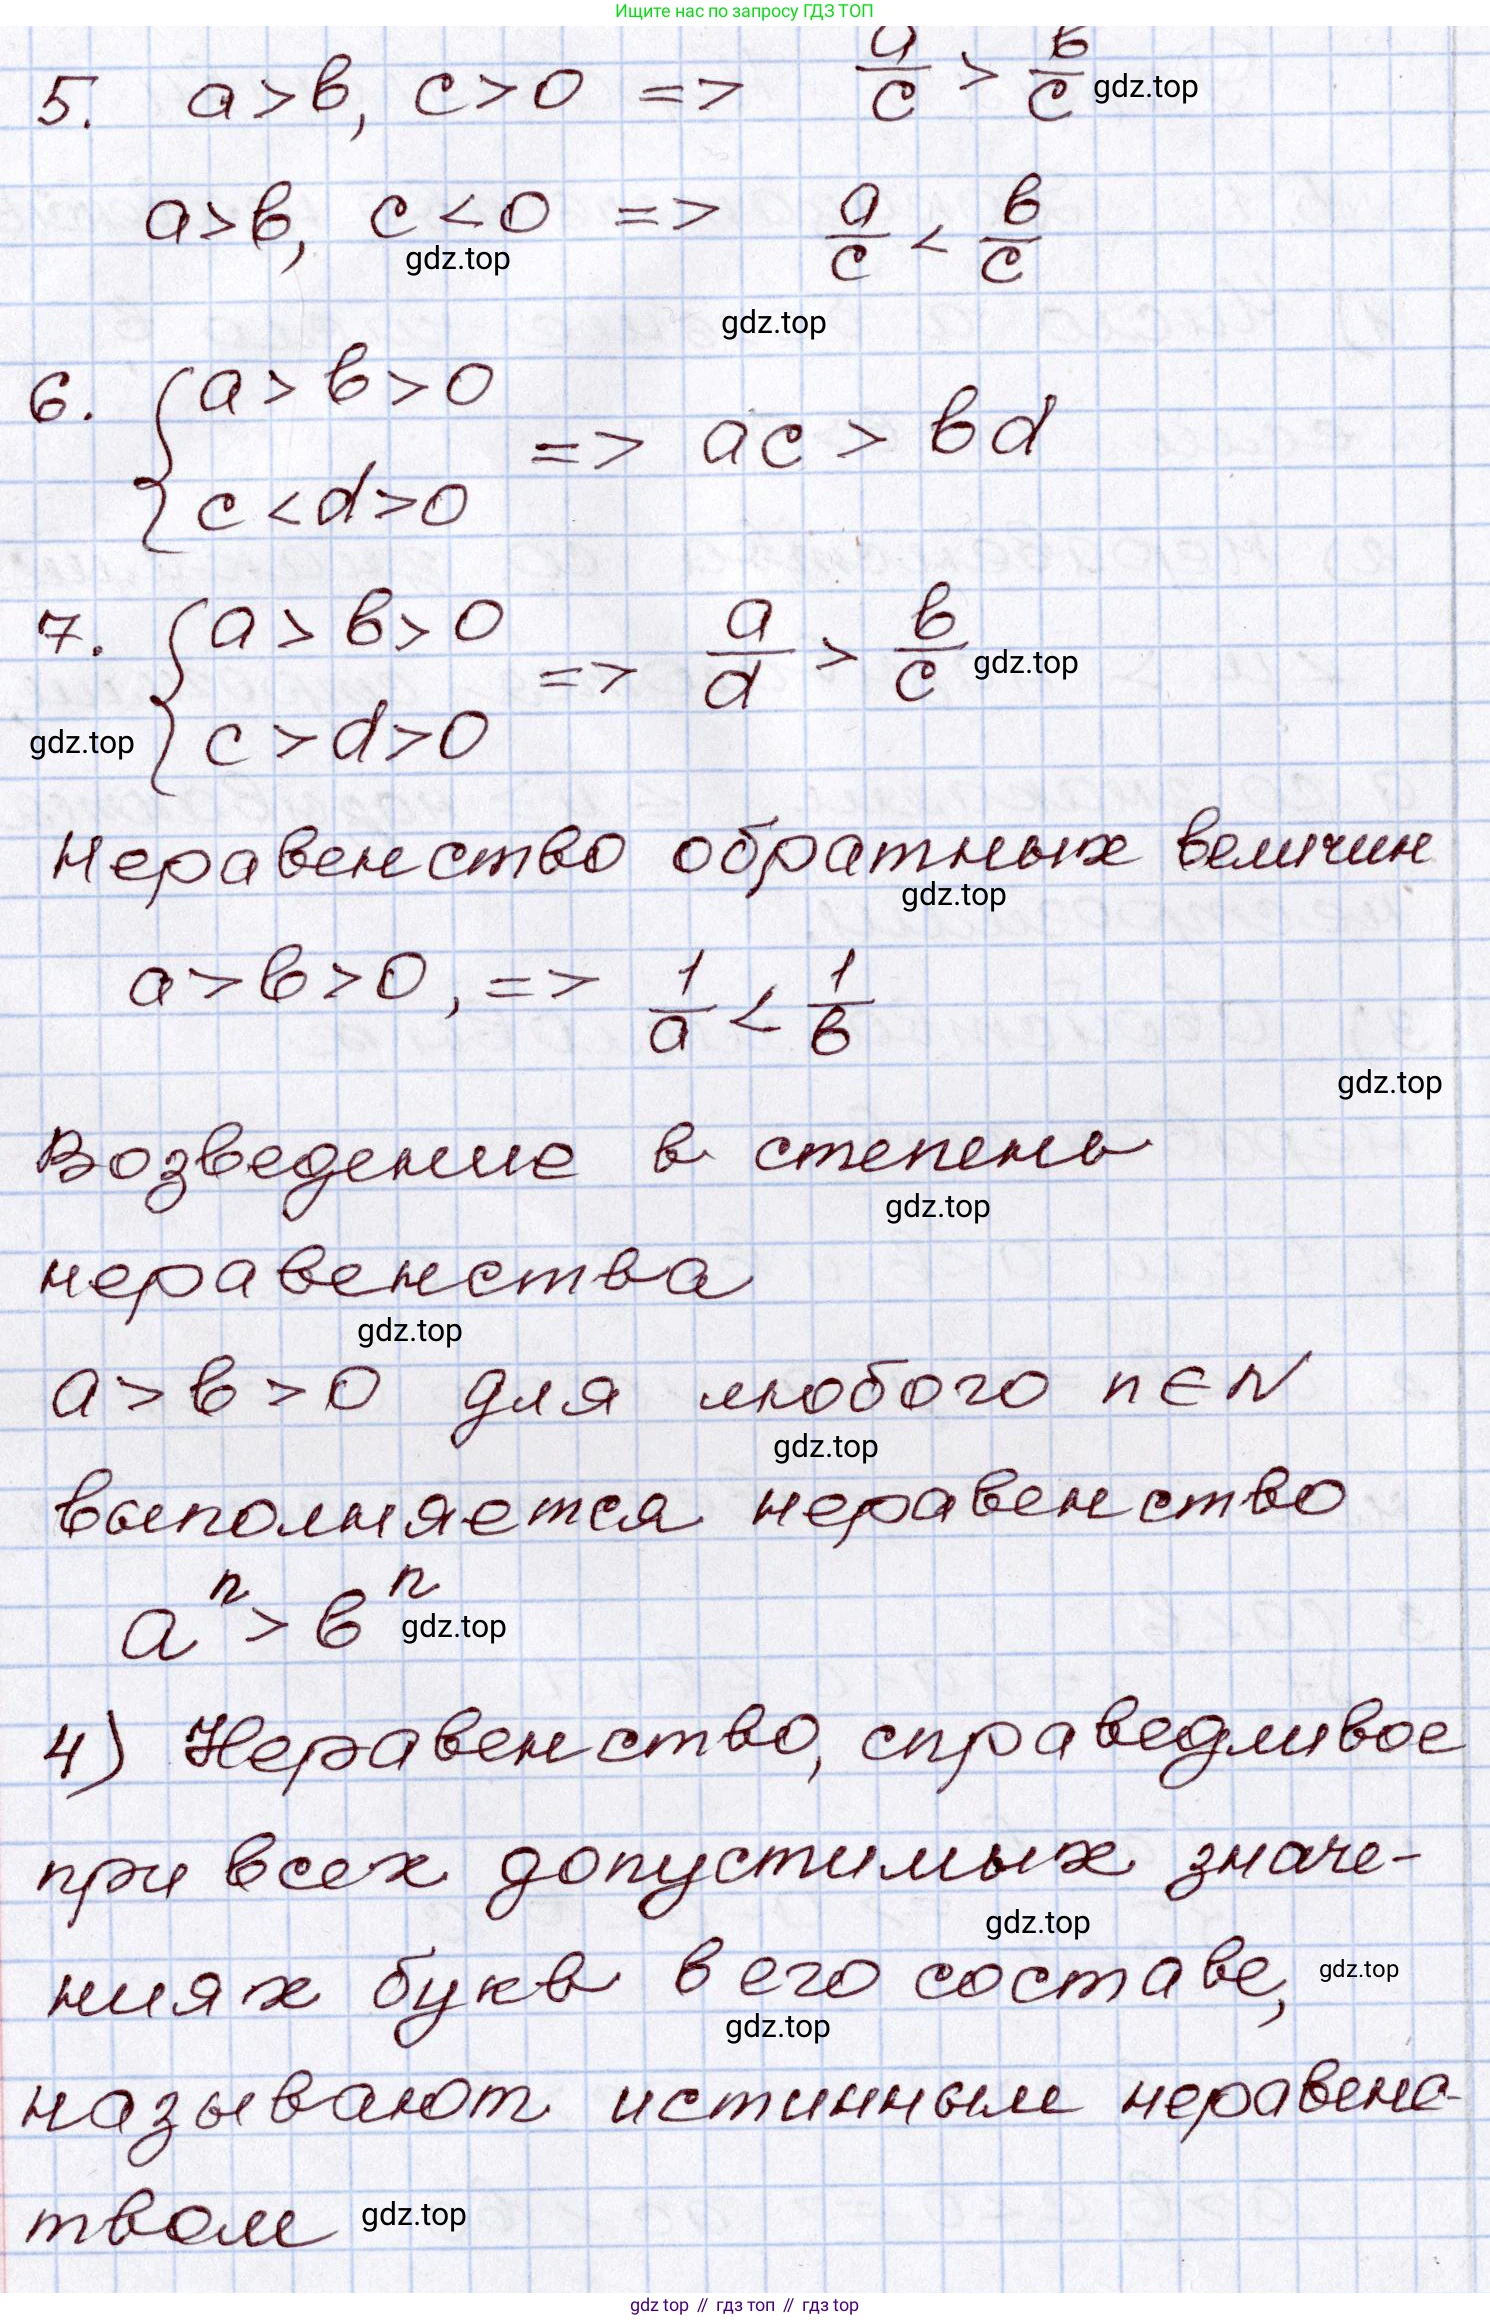 Ищите нас по запросу ГДЗ ТОП
5. a>b, c>0 => a/c > b/c gdz.top
a>b, c<0 => a/c < b/c
gdz.top
gdz.top
6. { a>b>0
c<d>0 => ac > bd
7. { a>b>0
c>d>0 => a/d > b/c gdz.top
gdz.top
Неравенство обратных величин
gdz.top
a>b>0, => 1/a < 1/b
gdz.top
Возведение в степень
gdz.top
неравенства
gdz.top
a>b>0 для любого n∈N
gdz.top
выполняется неравенство
aⁿ > bⁿ gdz.top
4) Неравенство, справедливое
при всех допустимых значе-
gdz.top
ниях букв в его составе, gdz.top
gdz.top
называют истинным неравенс-
твом gdz.top
gdz top // гдз топ // гдз top